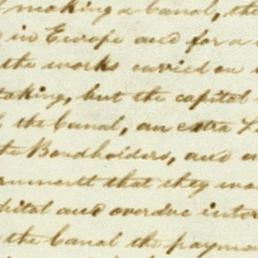 making a Canal, the
in Europe and for a
the works carried on
taking, but the capital
the Canal, an extra
Bondholders, and
that they
and overdue inter
the Canal the payme